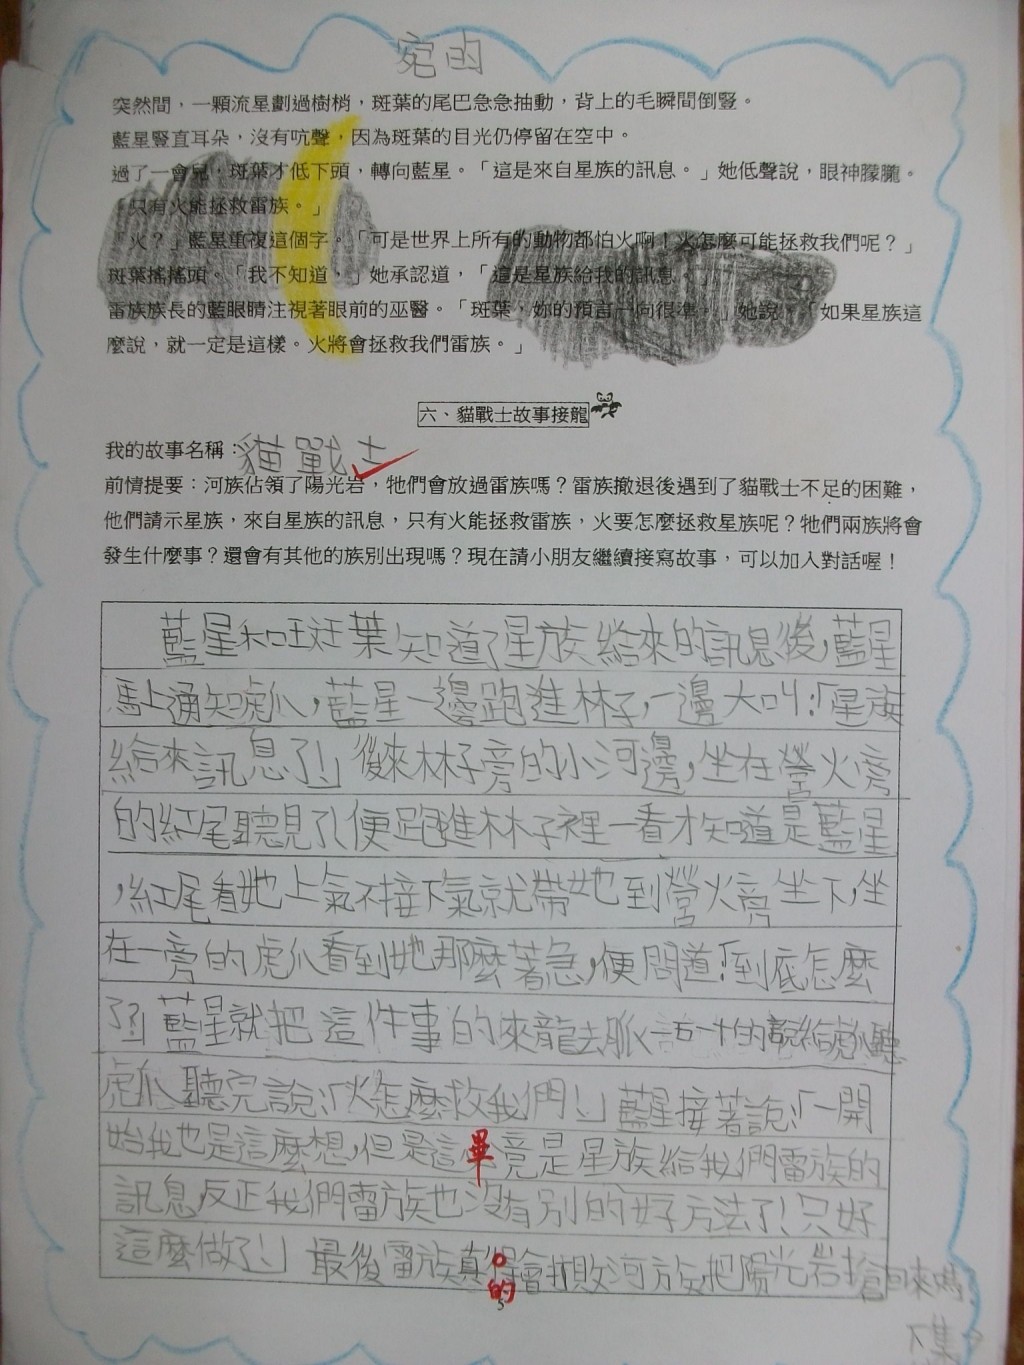 宛的
突然間，一顆流星劃過樹梢，斑葉的尾巴急急抽動，背上的毛瞬間倒豎。
藍星豎直耳朵，沒有吭聲，因為斑葉的目光仍停留在空中。
過了一會兒，斑葉才低下頭，轉向藍星。「這是來自星族的訊息。」她低聲說，眼神朦朧。
「只有火能拯救雷族。」
「火？」藍星重複這個字。「可是世界上所有的動物都怕火啊！火怎麼可能拯救我們呢？」
斑葉搖搖頭。「我不知道，」她承認道，「這是星族給我的訊息。」
雷族族長的藍眼睛注視著眼前的巫醫。「斑葉，妳的預言一向很準，」她說，「如果星族這
麼說，就一定是這樣。火將會拯救我們雷族。」
六、貓戰士故事接龍
我的故事名稱：貓戰士
前情提要：河族佔領了陽光岩，牠們會放過雷族嗎？雷族撤退後遇到了貓戰士不足的困難，
他們請示星族，來自星族的訊息，只有火能拯救雷族，火要怎麼拯救星族呢？牠們兩族將會
發生什麼事？還會有其他的族別出現嗎？現在請小朋友繼續接寫故事，可以加入對話喔！
藍星和斑葉知道了星族給來的訊息後，藍星
馬上通知虎爪，藍星一邊跑進林子，一邊大叫：「星族
給來訊息了！」後來林子旁的小河邊，坐在營火旁
的紅尾聽見了便跑進林子裡一看才知道是藍星
，紅尾看她上氣不接下氣就帶她到營火旁坐下，坐
在一旁的虎爪看到她那麼著急，便問道：「到底怎麼
了？」藍星就把這件事的來龍去脈一五一十的說給虎爪聽
虎爪聽完說：「火怎麼救我們！」藍星接著說：「一開
始我也是這麼想，但是這畢竟是星族給我們雷族的
訊息，反正我們雷族也沒有別的好方法了！只好
這麼做了！」最後雷族真得會打敗河族把陽光岩搶回來嗎？
的
5
下集→